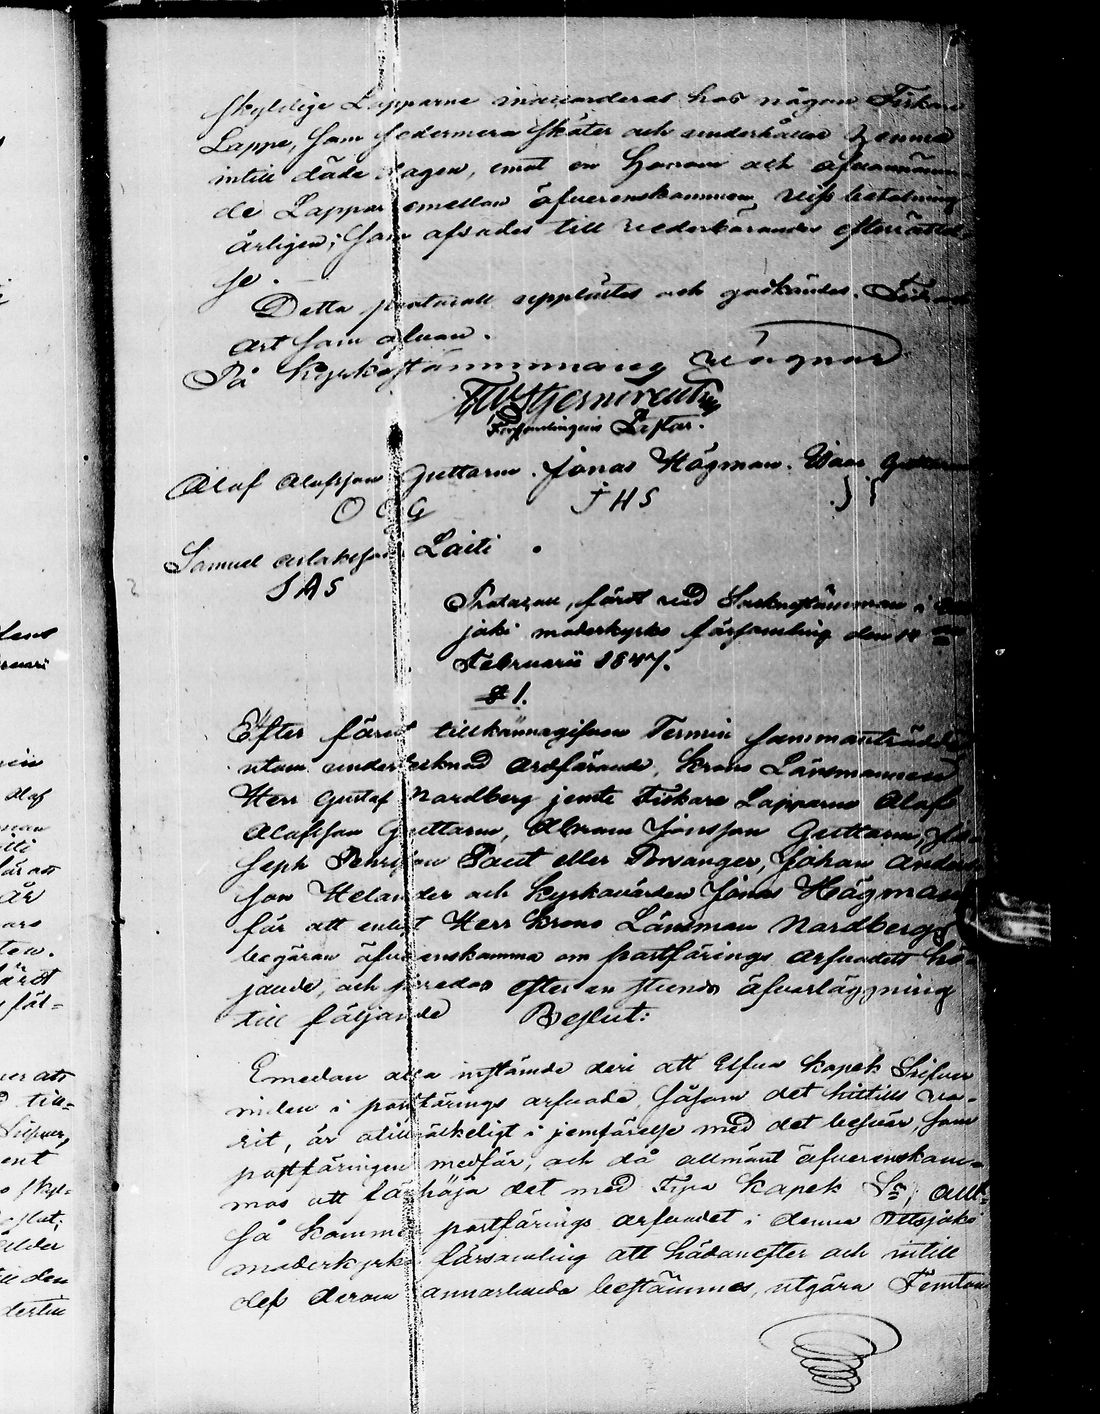 skyldige Lapparne inaccorderas hos någon Fiskare
Lappe, som sedermera sköter och underhåller henne
intill döde dagen, emot en Honom och ofvannämn-
de Lappar emellan öfverenskommen, viss betalning
årligen; som afsades till vederbörandes efterrättel-
se.
Detta protocoll upplästes och godkändes.
art som ofvan.
På Kyrkostämmans vägnar
Församlingens Pastor.
Olof Olofsson Guttorm. Jonas Högman. Guttorm
O O G J H S
Samuel Aslaksson Laiti
S A S
Protocoll, fördt vid Sockenstämman i
joki moderkyrko församling den 14
Februarii 1847.
§ 1.
Efter förut tillkännagifven Termin sammanträdde
utom undertecknad ordförande, Krono Länsmannen
Herr Gustaf Nordberg jemte Fiskare Lapparne Olof
Olofsson Guttorm, Abram Jonsson Guttorm, Jo-
seph Pehrsson Paut eller Porsanger, Johan Anders-
son Helander och Kyrkovärden Jonas Högman
för att enligt Herr Krono Länsman Nordbergs
begäran öfverenskomma om postförings arfvodets hö-
jande, och skredos efter en stunds öfverläggning
till följande Beslut:
Emedan alla instämde deri att Elfva kopek Silfver
milen i postförings arfvode, såsom det hittills va-
rit, är otillräckeligt i jemförelse med det besvär, som
postföringen medför, och då allmänt öfverenskom-
mos att förhöja det med Fyra kopek Sr, allt-
så kommer postförings arfvodet i denna Utsjoki
moderkyrko församling att hädanefter och intill
dess derom annorlunda bestämmes, utgöra Femton